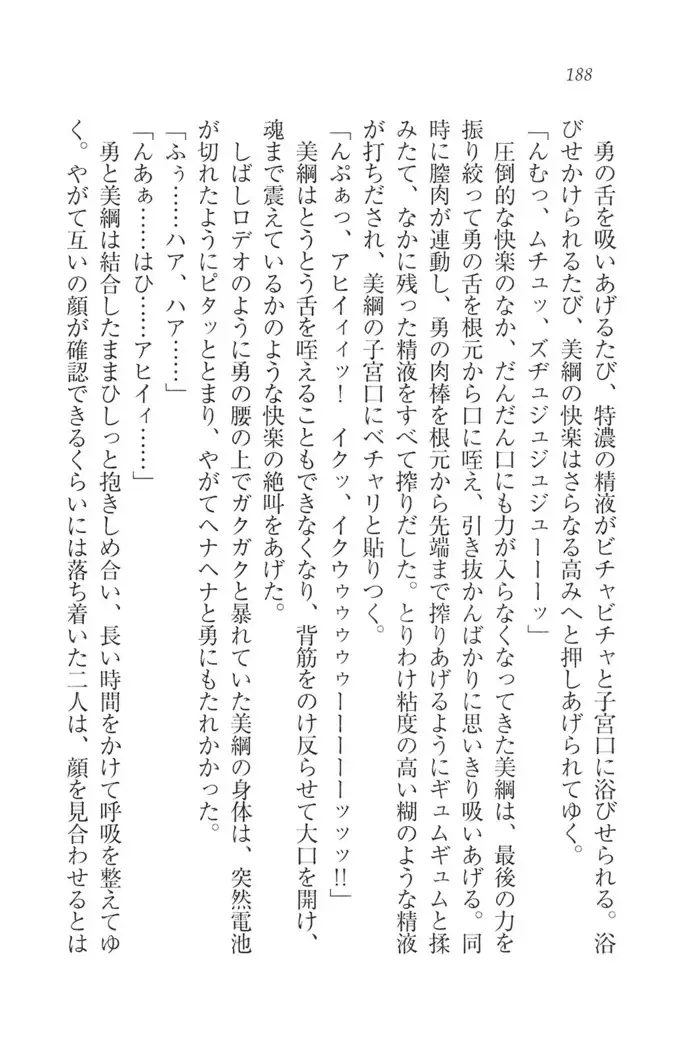 188
勇の舌を吸いあげるたび、特濃の精液がビチャビチャと子宮口に浴びせられる。浴
びせかけられるたび、美綱の快楽はさらなる高みへと押しあげられてゆく。
「んむっ、ムチュッ、ズヂュジュジュジューーーッ」
圧倒的な快楽のなか、だんだん口にも力が入らなくなってきた美綱は、最後の力を
振り絞って勇の舌を根元から口に咥え、引き抜かんばかりに思いきり吸いあげる。同
時に膣肉が連動し、勇の肉棒を根元から先端まで搾りあげるようにギュムギュムと揉
みたて、なかに残った精液をすべて搾りだした。とりわけ粘度の高い糊のような精液
が打ちだされ、美綱の子宮口にベチャリと貼りつく。
「んぷぁっ、アヒイィィッ！　イクッ、イクウゥゥゥゥーーーーーッッッ!!」
美綱はとうとう舌を咥えることもできなくなり、背筋をのけ反らせて大口を開け、
魂まで震えているかのような快楽の絶叫をあげた。
しばしロデオのように勇の腰の上でガクガクと暴れていた美綱の身体は、突然電池
が切れたようにピタッととまり、やがてヘナヘナと勇にもたれかかった。
「ふぅ……ハア、ハア……」
「んあぁ……はひ……アヒイィ……」
勇と美綱は結合したままひしっと抱きしめ合い、長い時間をかけて呼吸を整えてゆ
く。やがて互いの顔が確認できるくらいには落ち着いた二人は、顔を見合わせるとは